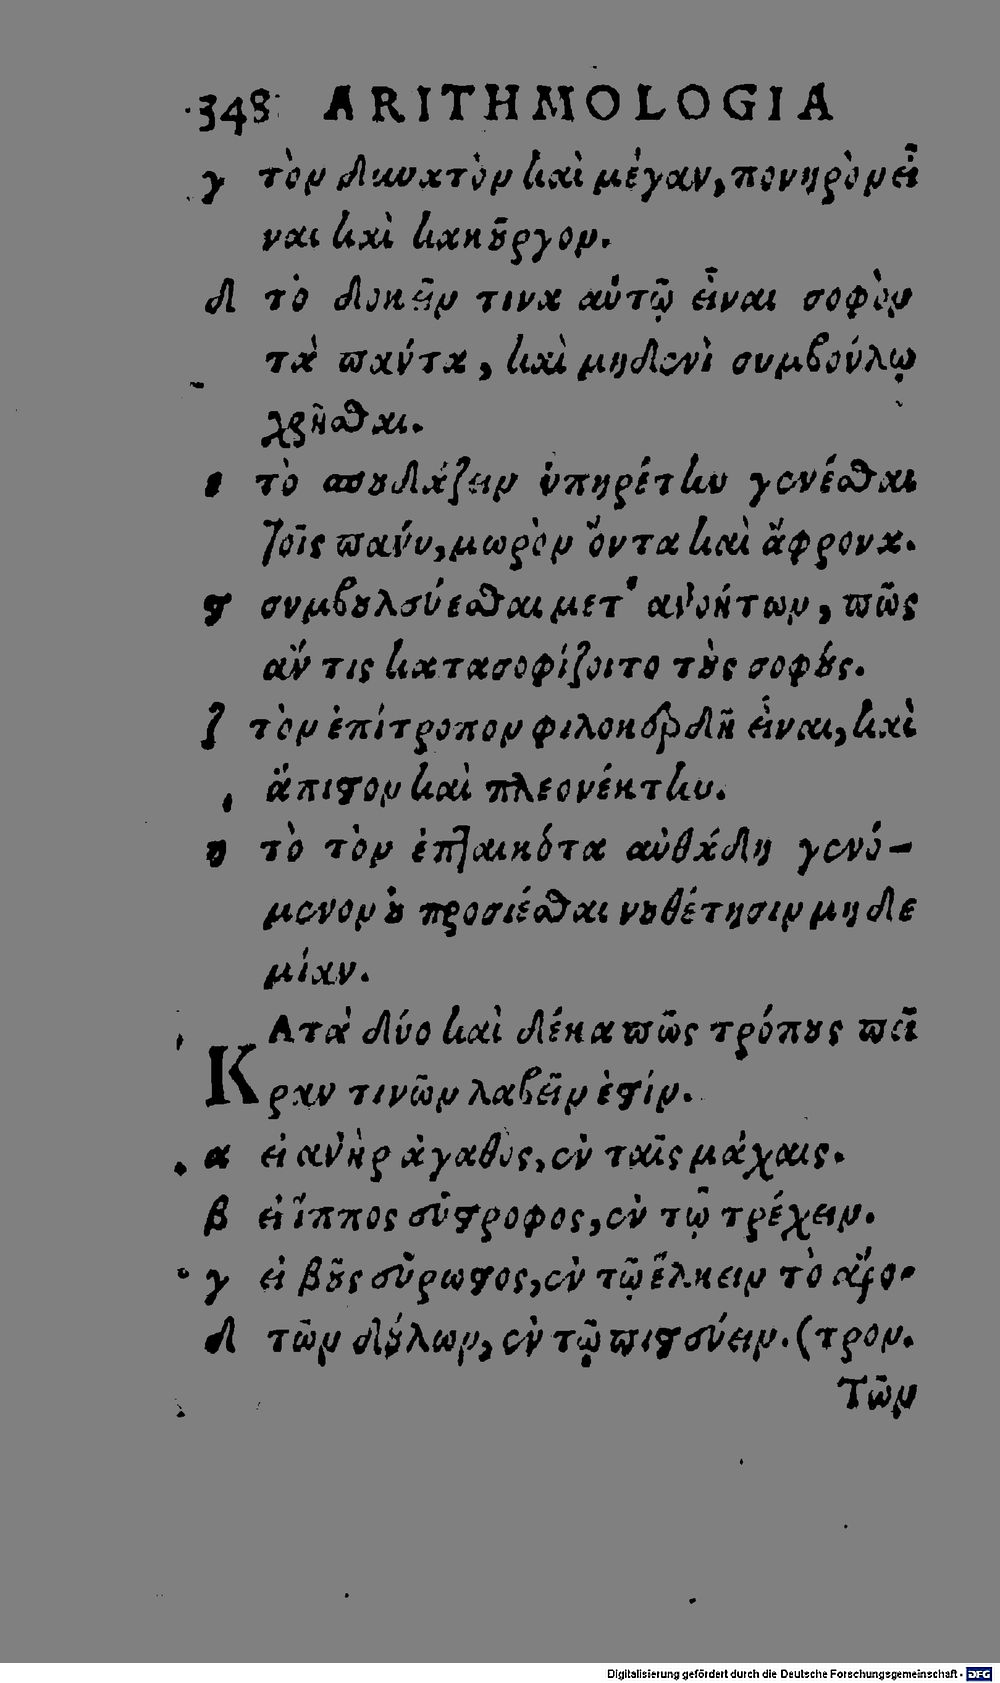 348 ARITHMOLOGIA
γ τὸν δυνατὸν καὶ μέγαν, πονηρὸν εἶ
ναι καὶ κακοῦργον.
δ τὸ δοκεῖν τινα αὑτῷ εἶναι σοφὸν
τὰ πάντα, καὶ μηδενὶ συμβούλῳ
χρῆσθαι.
ε τὸ σπουδάζειν ὑπηρέτην γενέσθαι
τοῖς πάνυ, μωρὸν ὄντα καὶ ἄφρονα.
ϛ συμβουλεύεσθαι μετ' ἀνοήτων, πῶς
ἄν τις κατασοφίζοιτο τοὺς σοφούς.
ζ τὸν ἐπίτροπον φιλοκερδῆ εἶναι, καὶ
ἄπιστον καὶ πλεονέκτην.
η τὸ τὸν ἐπταικότα αὐθάδη γενό-
μενον οὐ προσιέσθαι νουθέτησιν μηδε
μίαν.
ΚΑτὰ δύο καὶ δέκα πῶς τρόπους πεῖ
ραν τινῶν λαβεῖν ἐστίν.
α εἰ ἀνὴρ ἀγαθὸς, ἐν ταῖς μάχαις.
β εἰ ἵππος εὔστροφος, ἐν τῷ τρέχειν.
γ εἰ βοῦς εὔρωστος, ἐν τῷ ἕλκειν τὸ ἄρο-
δ τῶν δούλων, ἐν τῷ πιστεύειν. (τρον.
Τῶν
Digitalisierung gefördert durch die Deutsche Forschungsgemeinschaft - DFG